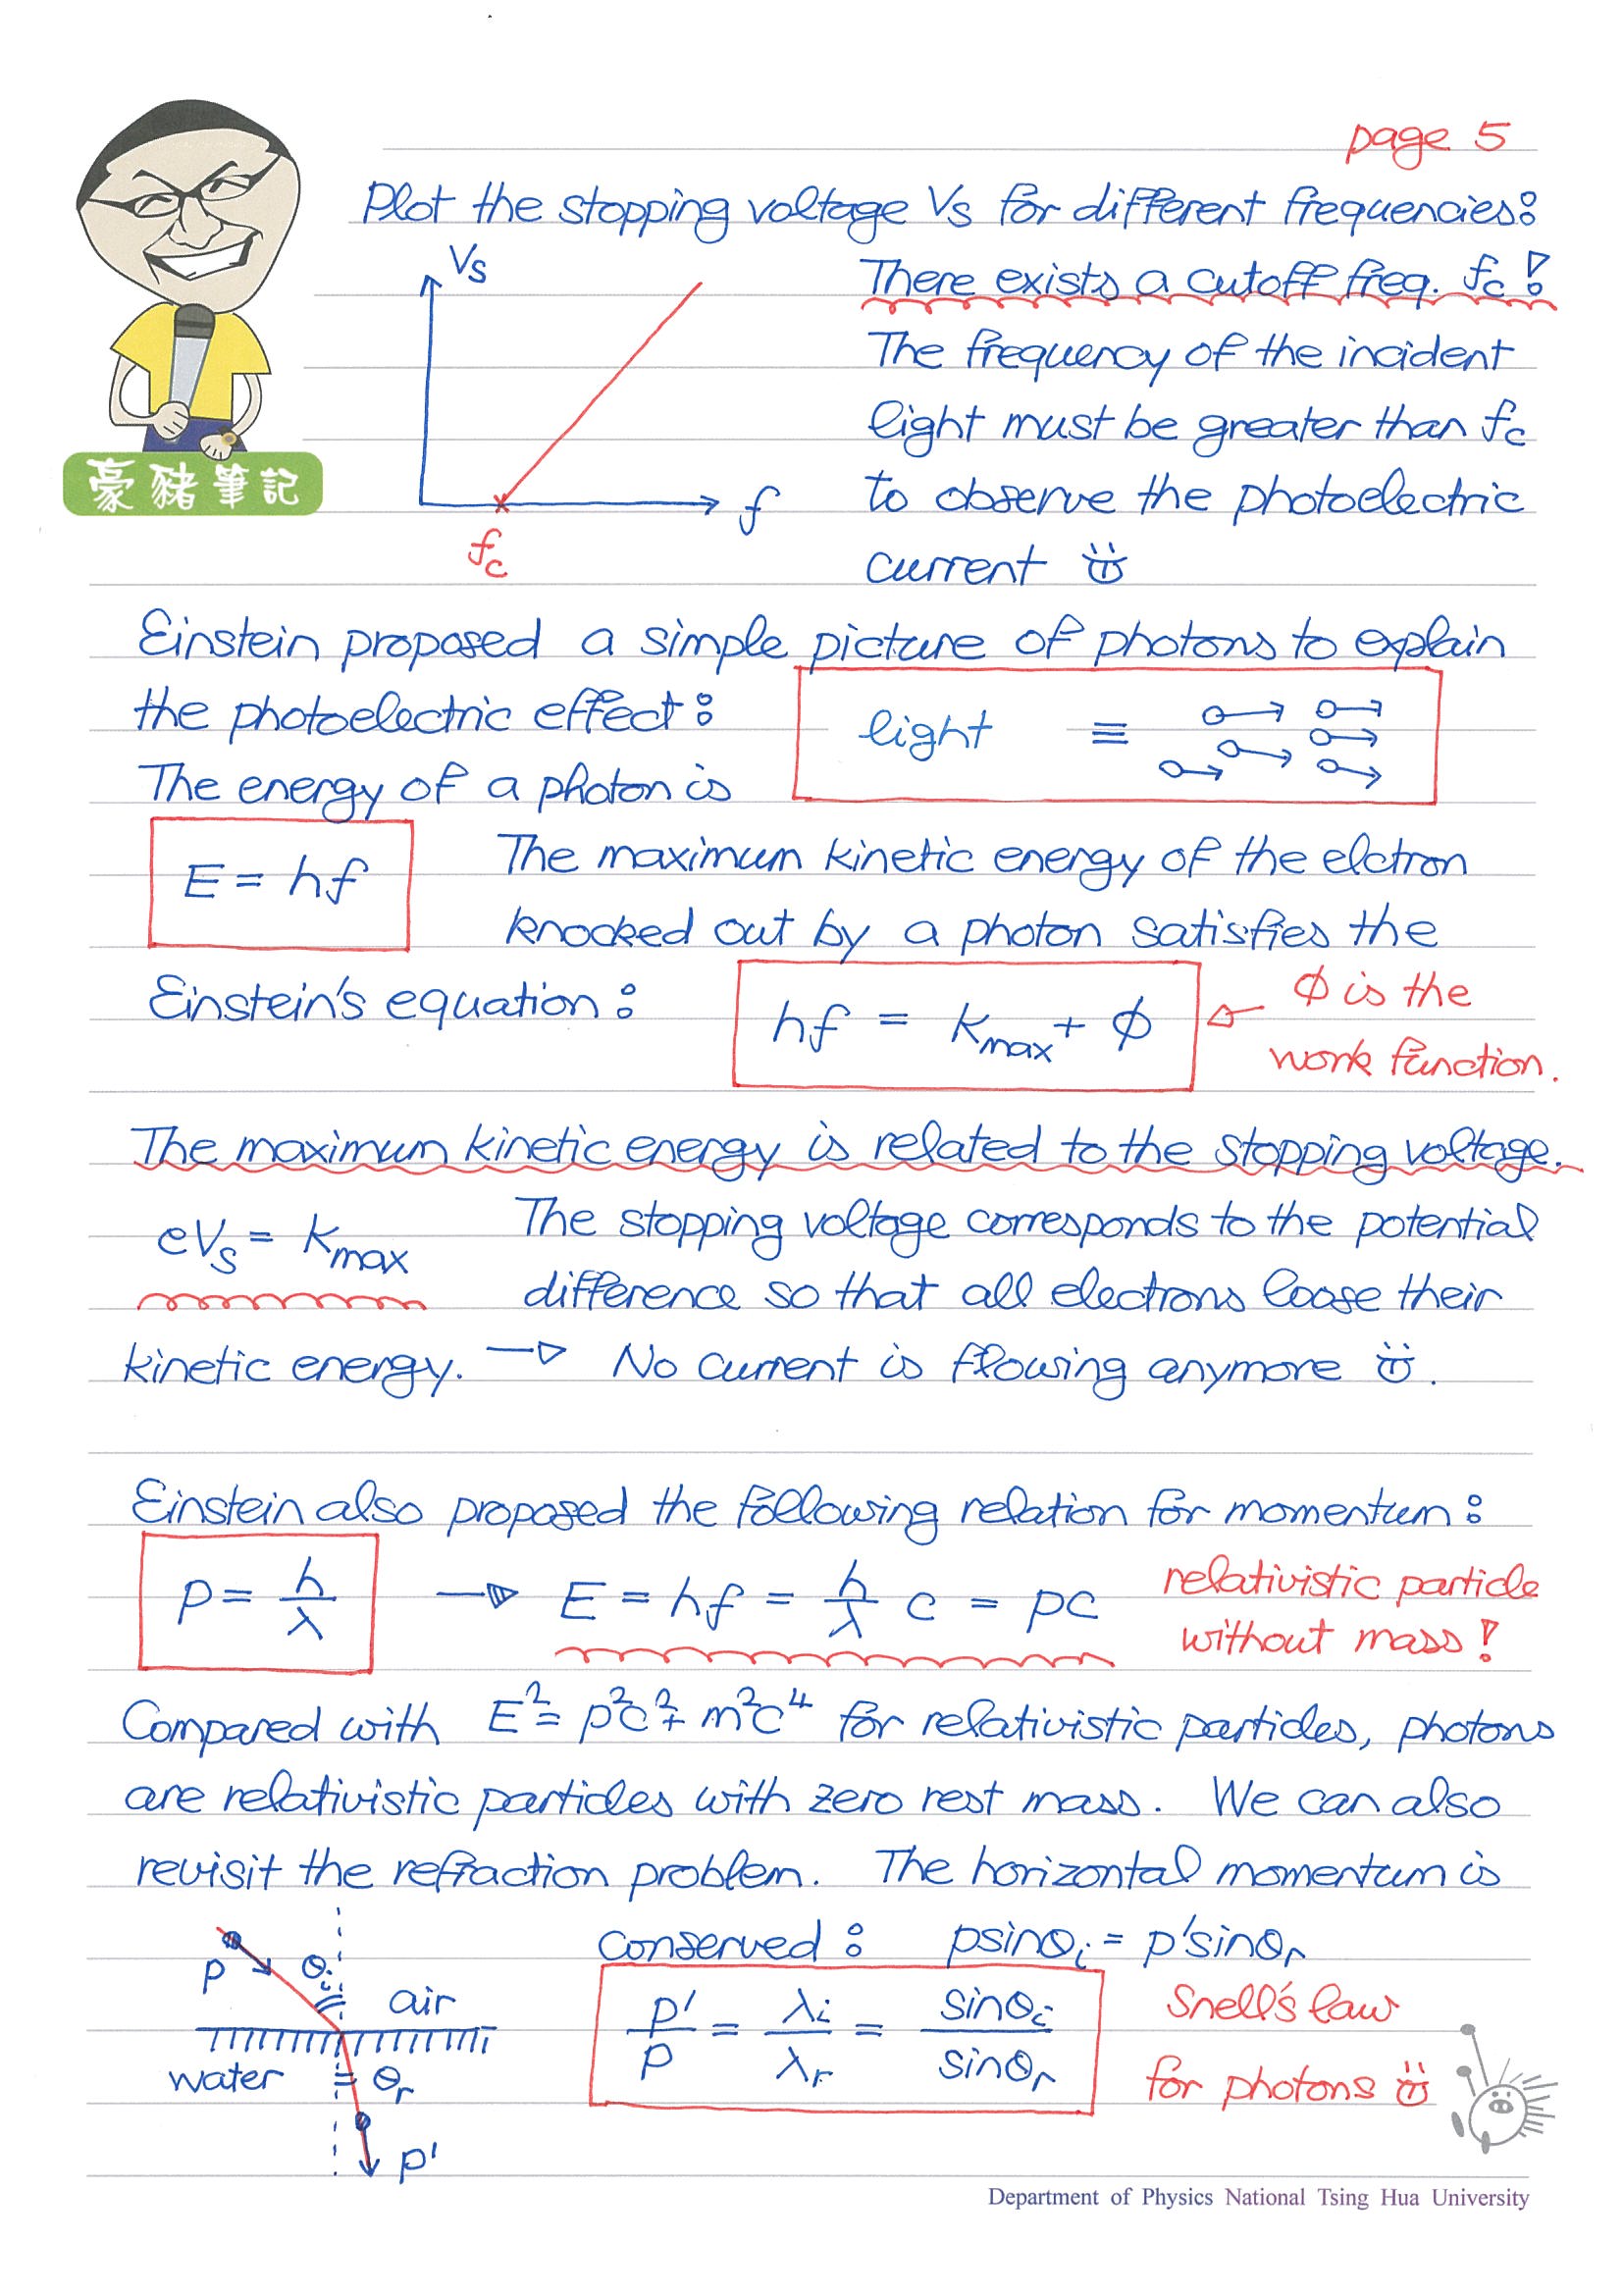 page 5
Plot the stopping voltage Vs for different frequencies:
Vs
There exists a cutoff freq. fc!
The frequency of the incident
light must be greater than fc
to observe the photoelectric
f
fc
current
豪豬筆記
Einstein proposed a simple picture of photons to explain
the photoelectric effect:
light ≡
The energy of a photon is
E = hf
The maximum kinetic energy of the elctron
knocked out by a photon satisfies the
Einstein's equation:
hf = Kmax + ϕ
ϕ is the
work function.
The maximum kinetic energy is related to the stopping voltage.
eVs = Kmax
The stopping voltage corresponds to the potential
difference so that all electrons loose their
kinetic energy. → No current is flowing anymore .
Einstein also proposed the following relation for momentum:
p = h/λ → E = hf = h/λ c = pc
relativistic particle
without mass!
Compared with E² = p²c² + m²c⁴ for relativistic particles, photons
are relativistic particles with zero rest mass. We can also
revisit the refraction problem. The horizontal momentum is
conserved: psinθi = p'sinθr
p
θi
air
water
θr
p'
p'/p = λi/λr = sinθi/sinθr
Snell's law
for photons
Department of Physics National Tsing Hua University